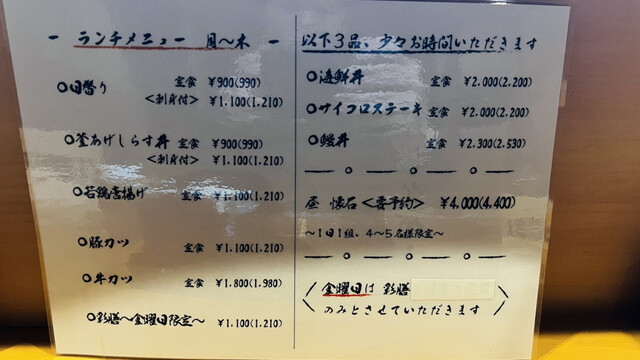 - ランチメニュー 月〜木 -
○日替り 定食 ¥900(990)
<刺身付> ¥1.100(1.210)
○釜あげしらす丼 定食 ¥900(990)
<刺身付> ¥1.100(1.210)
○若鶏唐揚げ 定食 ¥1.100(1.210)
○豚カツ 定食 ¥1.100(1.210)
○牛カツ 定食 ¥1.800(1.980)
○彩膳〜金曜日限定〜 ¥1.100(1.210)
以下3品、少々お時間いただきます
○海鮮丼 定食 ¥2.000(2.200)
○サイコロステーキ 定食 ¥2.000(2.200)
○鰻丼 定食 ¥2.300(2.530)
昼 懐石<要予約> ¥4.000(4.400)
〜1日1組、4〜5名様限定〜
金曜日は 彩膳
のみとさせていただきます